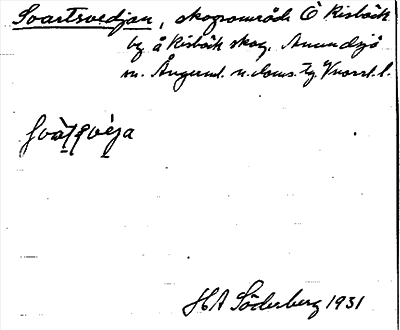 Svartsvedjan, skogsområde Ö Risbäck
by å Risbäck skog. Anundsjö
sn. Ångerml. n. doms. tg. Västl.
HA Söderberg 1931